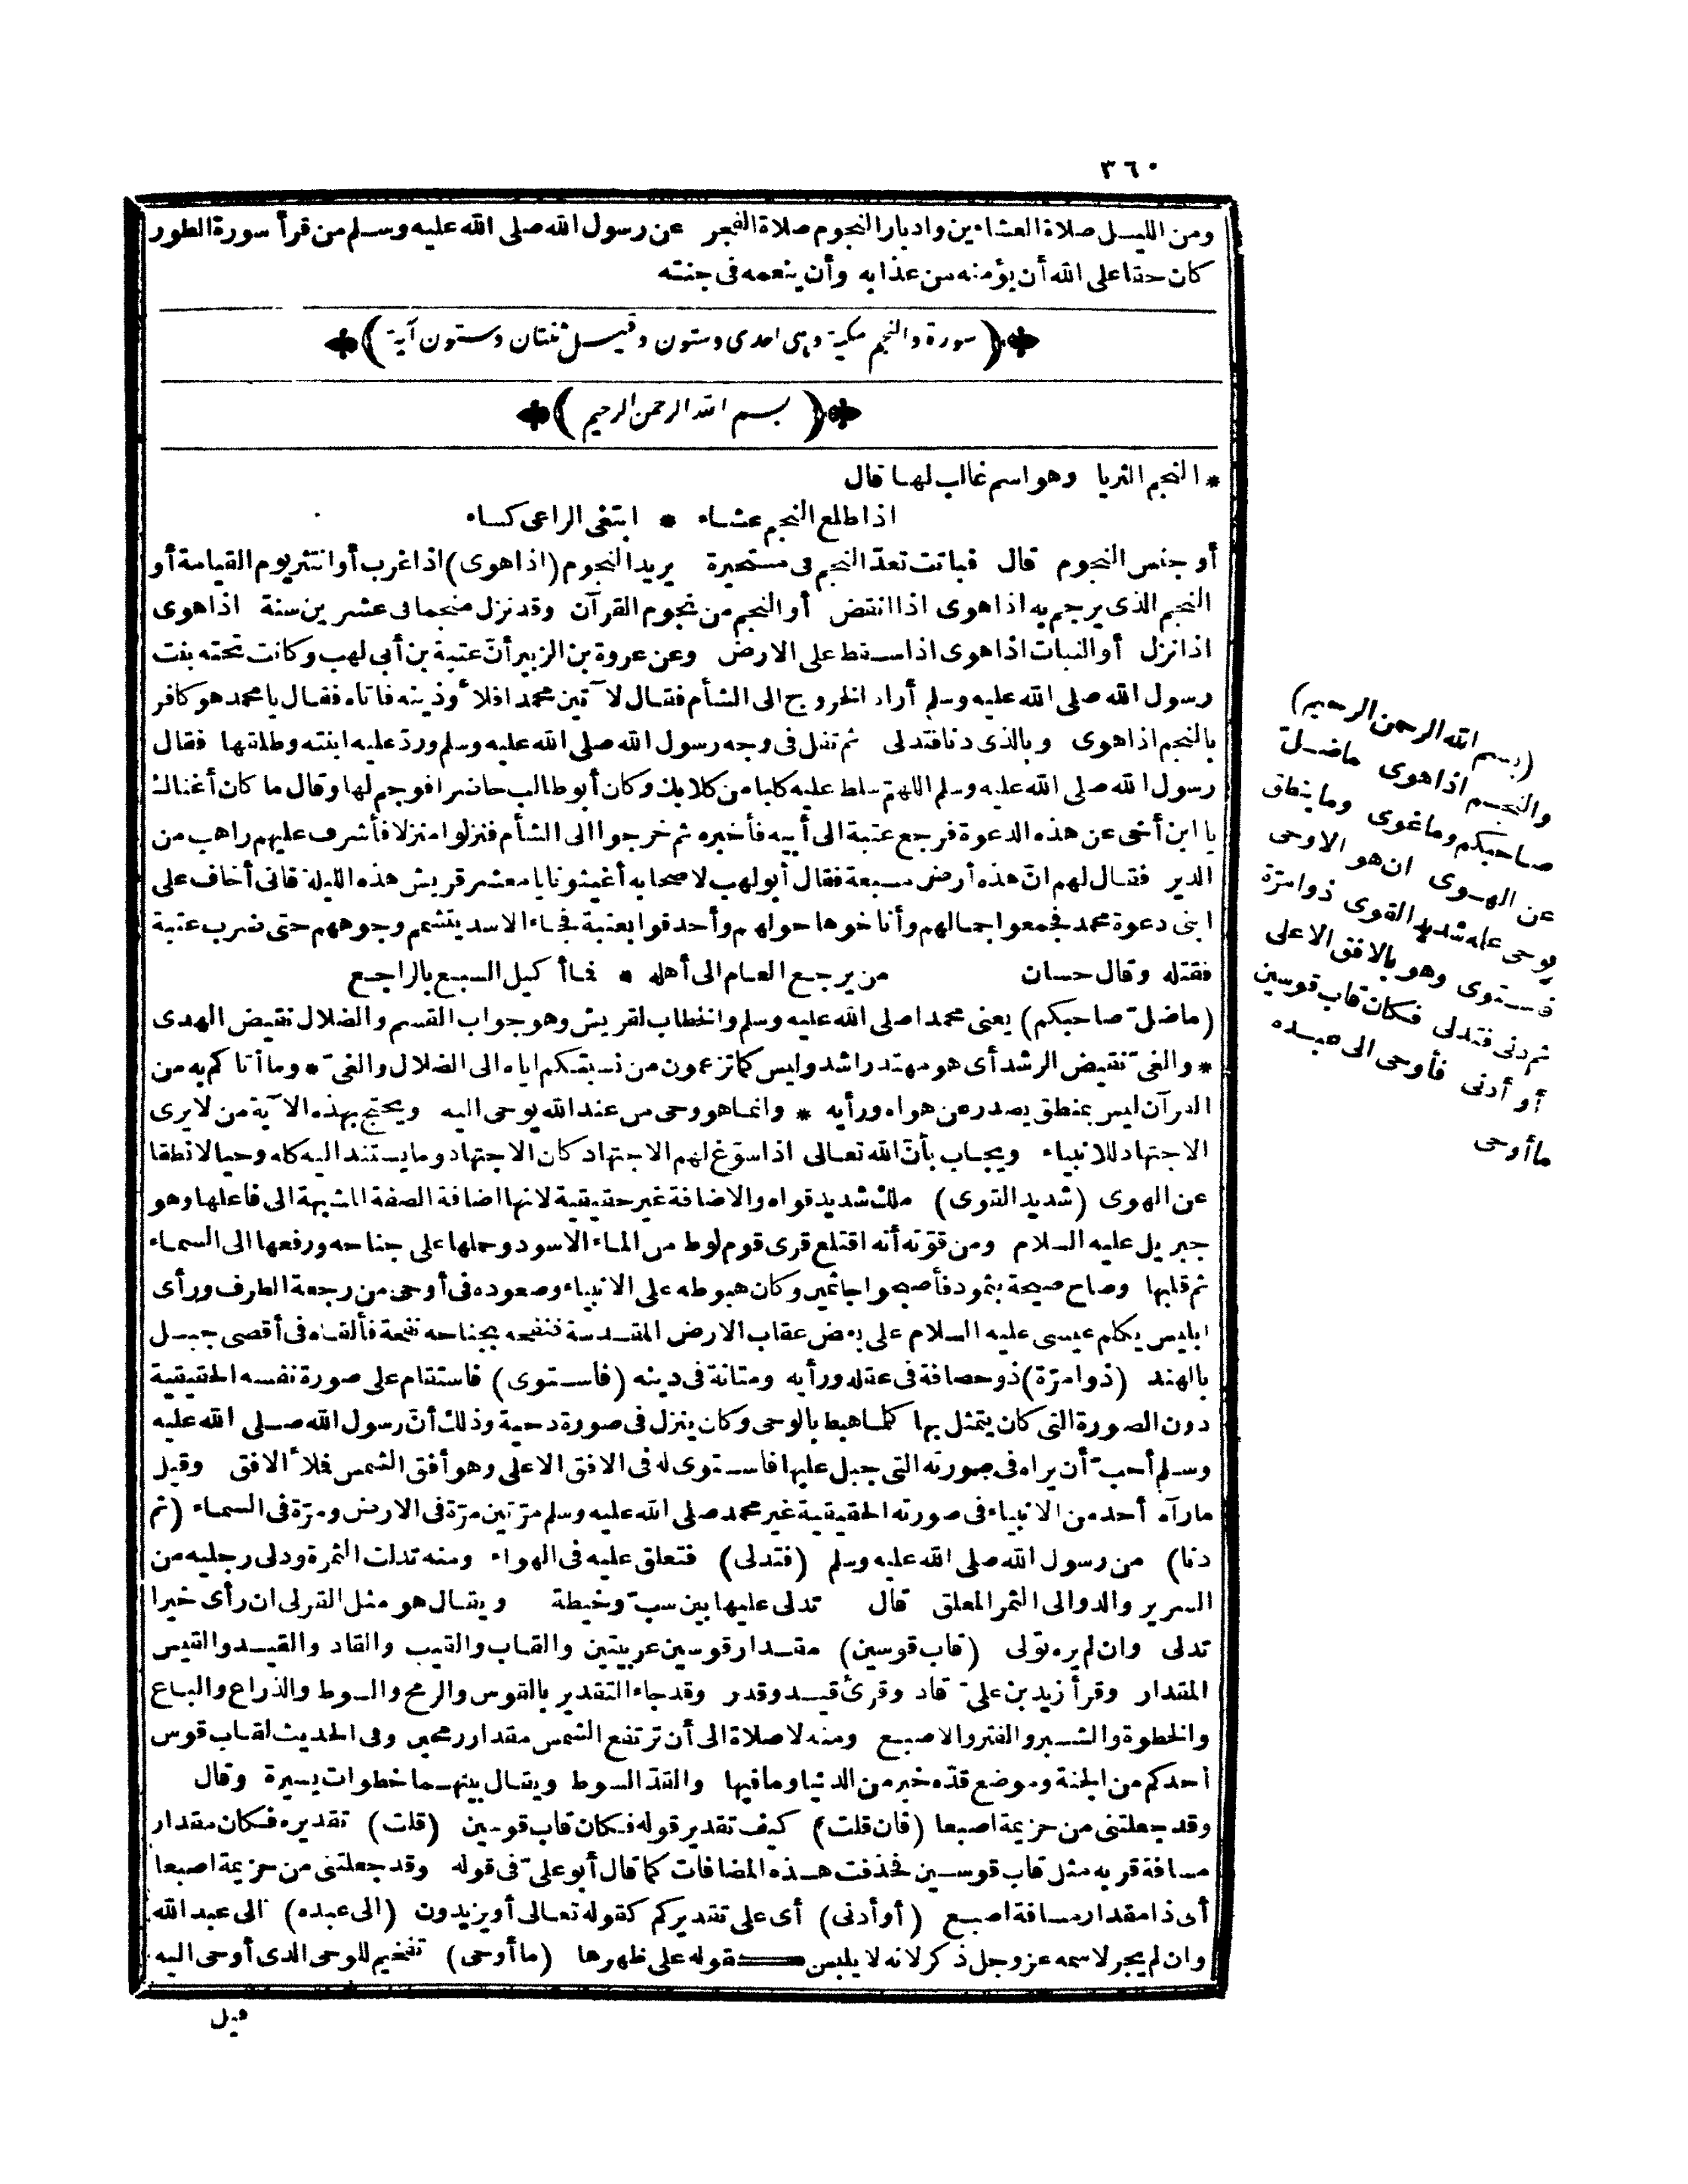 ٣٦٠
ومن الليل صلاة العشاءين وادبار النجوم صلاة الفجر عن رسول الله صلى الله عليه وسلم من قرأ سورة الطور
كان حقا على الله أن يؤمنه من عذابه وأن ينعمه فى جنته
﴿سورة والنجم مكية وهى احدى وستون وقيل ثنتان وستون آية﴾
﴿بسم الله الرحمن الرحيم﴾
* النجم الثريا وهو اسم غالب لها قال
اذا طلع النجم عشاء * ابتغى الراعى كساء
أو جنس النجوم قال فباتت تعدّ النجم فى مستحيرة يريد النجوم (اذا هوى) اذا غرب أو انتثر يوم القيامة أو
النجم الذى يرجم به اذا هوى اذا انقض أو النجم من نجوم القرآن وقد نزل منجما فى عشرين سنة اذا هوى
اذا نزل أو النبات اذا هوى اذا سقط على الارض وعن عروة بن الزبير أنّ عتبة بن أبى لهب وكانت تحته بنت
رسول الله صلى الله عليه وسلم أراد الخروج الى الشأم فقال لآتين محمدا فلأوذينه فاتاه فقال يا محمد هو كافر
بالنجم اذا هوى وبالذى دنا فتدلى ثم تفل فى وجه رسول الله صلى الله عليه وسلم وردّ عليه ابنته وطلقها فقال
رسول الله صلى الله عليه وسلم اللهمّ سلط عليه كلبا من كلابك وكان أبو طالب حاضرا فوجم لها وقال ما كان أغناك
يا ابن أخى عن هذه الدعوة فرجع عتبة الى أبيه فأخبره ثم خرجوا الى الشأم فنزلوا منزلا فأشرف عليهم راهب من
الدير فقال لهم انّ هذه أرض مسبعة فقال أبو لهب لاصحابه أغيثونا يا معشر قريش هذه الليلة فانى أخاف على
ابنى دعوة محمد فجمعوا جمالهم وأناخوها حولهم وأحدقوا بعتبة فجاء الاسد يتشمم وجوههم حتى ضرب عتبة
فقتله وقال حسان من يرجع العام الى أهله * فما أكيل السبع بالراجع
(ما ضلّ صاحبكم) يعنى محمدا صلى الله عليه وسلم والخطاب لقريش وهو جواب القسم والضلال نقيض الهدى
* والغىّ نقيض الرشد أى هو مهتد راشد وليس كما تزعمون من نسبتكم اياه الى الضلال والغىّ * وما أتاكم به من
القرآن ليس بمنطق يصدر عن هواه ورأيه * وانما هو وحى من عند الله يوحى اليه ويحتج بهذه الآية من لا يرى
الاجتهاد للانبياء ويجاب بأنّ الله تعالى اذا سوّغ لهم الاجتهاد كان الاجتهاد وما يستند اليه كله وحيا لا نطقا
عن الهوى (شديد القوى) ملك شديد قواه والاضافة غير حقيقية لانها اضافة الصفة المشبهة الى فاعلها وهو
جبريل عليه السلام ومن قوّته أنه اقتلع قرى قوم لوط من الماء الاسود وحملها على جناحه ورفعها الى السماء
ثم قلبها وصاح صيحة بثمود فأصبحوا جاثمين وكان هبوطه على الانبياء وصعوده فى أوحى من رجعة الطرف ورأى
ابليس يكلم عيسى عليه السلام على بعض عقاب الارض المقدسة فنفحه بجناحه نفحة فألقاه فى أقصى جبل
بالهند (ذو امرّة) ذو حصافة فى عقله ورأيه ومتانة فى دينه (فاستوى) فاستقام على صورة نفسه الحقيقية
دون الصورة التى كان يتمثل بها كلما هبط بالوحى وكان ينزل فى صورة دحية وذلك أنّ رسول الله صلى الله عليه
وسلم أحبّ أن يراه فى صورته التى جبل عليها فاستوى له فى الافق الاعلى وهو أفق الشمس فملأ الافق وقيل
ما رآه أحد من الانبياء فى صورته الحقيقية غير محمد صلى الله عليه وسلم مرّتين مرّة فى الارض ومرّة فى السماء (ثم
دنا) من رسول الله صلى الله عليه وسلم (فتدلى) فتعلق عليه فى الهواء ومنه تدلت الثمرة ودلى رجليه من
السرير والدوالى الثمر المعلق قال تدلى عليها بين سبّ وخيطة ويقال هو مثل القرلى ان رأى خيرا
تدلى وان لم يره تولى (قاب قوسين) مقدار قوسين عربيتين والقاب والقيب والقاد والقيد والقيس
المقدار وقرأ زيد بن علىّ قاد وقرئ قيد وقدر وقد جاء التقدير بالقوس والرمح والسوط والذراع والباع
والخطوة والشبر والفتر والاصبع ومنه لا صلاة الى أن ترتفع الشمس مقدار رمحين وفى الحديث لقاب قوس
أحدكم من الجنة وموضع قدّه خير من الدنيا وما فيها والقدّ السوط ويقال بينهما خطوات يسيرة وقال
وقد جعلتنى من حزيمة اصبعا (فان قلت) كيف تقدير قوله فكان قاب قوسين (قلت) تقديره فكان مقدار
مسافة قربه مثل قاب قوسين فحذفت هذه المضافات كما قال أبو علىّ فى قوله وقد جعلتنى من حزيمة اصبعا
أى ذا مقدار مسافة اصبع (أو أدنى) أى على تقديركم كقوله تعالى أو يزيدون (الى عبده) الى عبد الله
وان لم يجر لاسمه عز وجل ذكر لانه لا يلبس كقوله على ظهرها (ما أوحى) تفخيم للوحى الذى أوحى اليه
قيل
(بسم الله الرحمن الرحيم)
والنجم اذا هوى ما ضلّ
صاحبكم وما غوى وما ينطق
عن الهوى ان هو الا وحى
يوحى علمه شديد القوى ذو امرّة
فاستوى وهو بالافق الاعلى
ثم دنى فتدلى فكان قاب قوسين
أو أدنى فأوحى الى عبده
ما أوحى